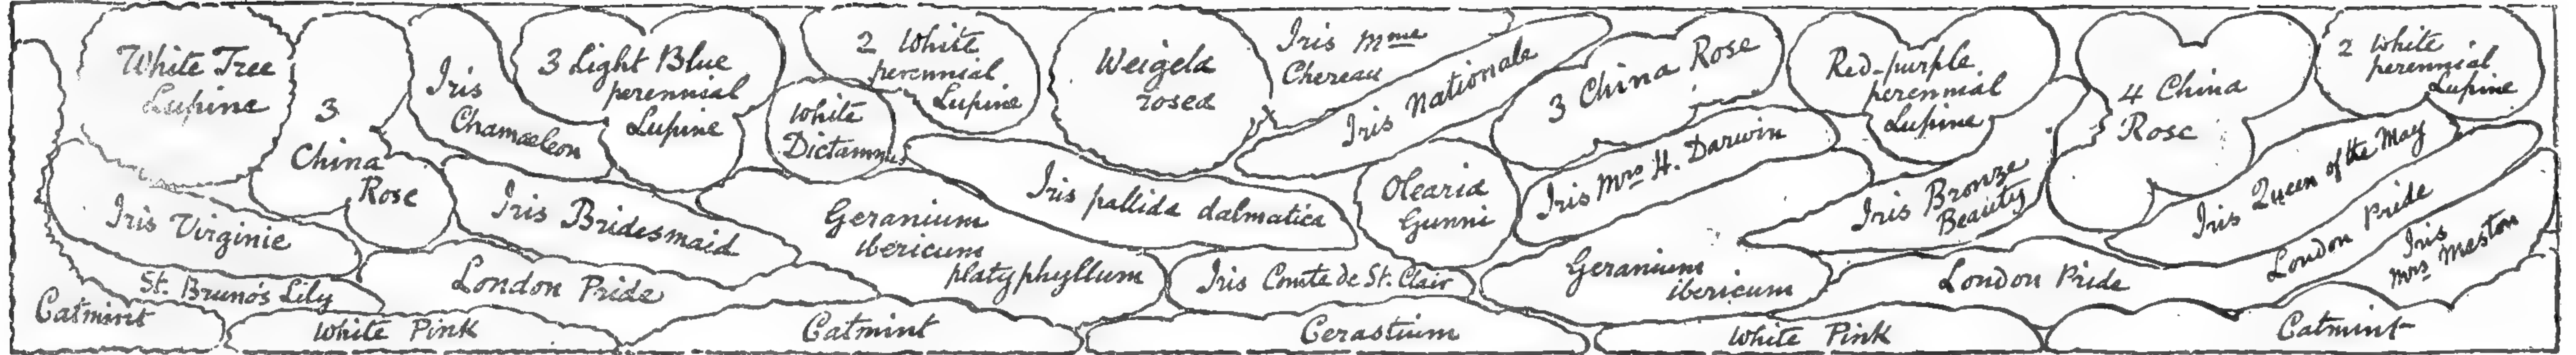 White Tree
Lupine
3
China
Rose
Iris
Chamaeleon
3 Light Blue
perennial
Lupine
White
Dictamnus
2 White
perennial
Lupine
Weigela
rosea
Iris Mme
Chereau
Iris Nationale
3 China Rose
Red-purple
perennial
Lupine
4 China
Rose
2 White
perennial
Lupine
Iris Virginie
Iris Bridesmaid
Geranium
ibericum
platyphyllum
Iris pallida dalmatica
Olearia
Gunni
Iris Mrs H. Darwin
Iris Bronze
Beauty
Iris Queen of the May
London Pride
Iris
Mrs Meston
St. Bruno's Lily
London Pride
Iris Comte de St. Clair
Geranium
ibericum
London Pride
Catmint
White Pink
Catmint
Cerastium
White Pink
Catmint